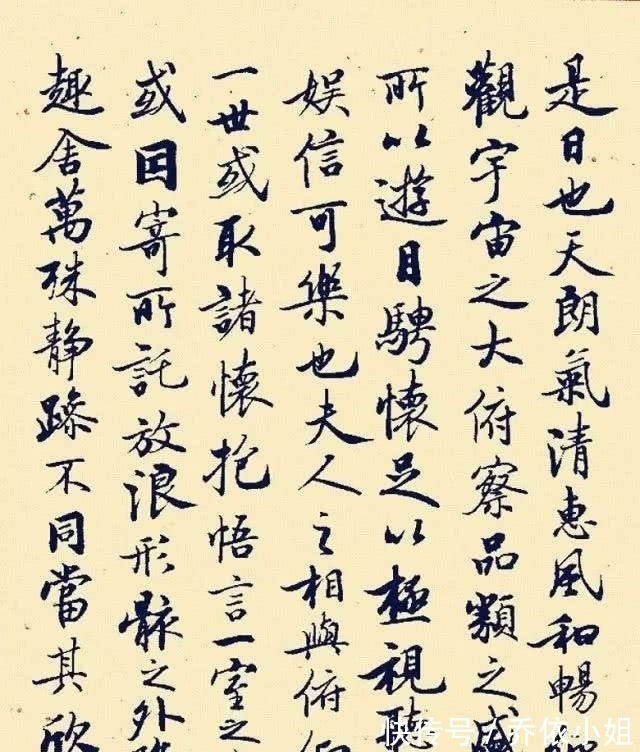 是日也天朗氣清惠風和暢
觀宇宙之大俯察品類之盛
所以遊目騁懷足以極視聽
娛信可樂也夫人之相與俯仰
一世或取諸懷抱悟言一室之
或因寄所託放浪形骸之外雖
趣舍萬殊静躁不同當其欣
快传号/乔依小姐